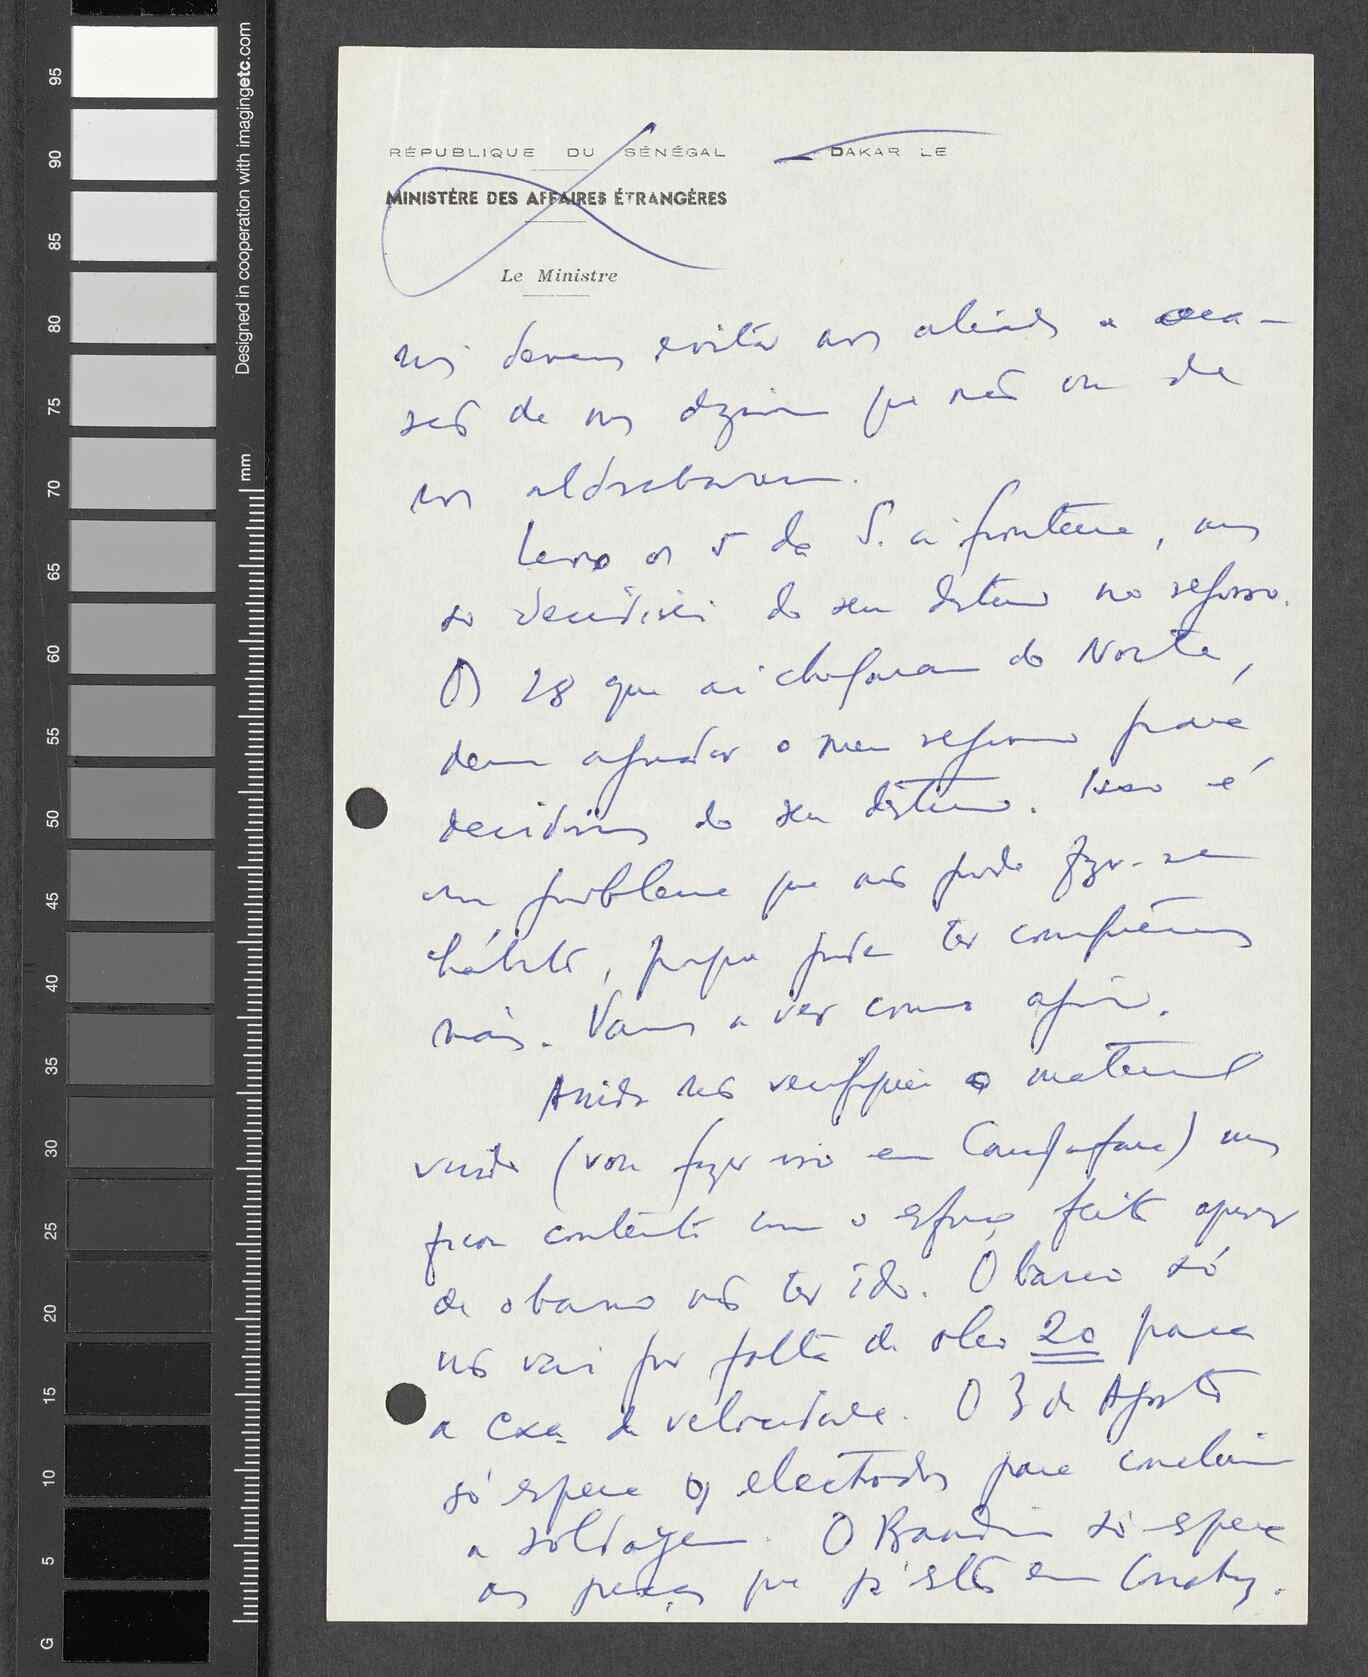 RÉPUBLIQUE DU SÉNÉGAL
DAKAR LE
MINISTÈRE DES AFFAIRES ÉTRANGÈRES
Le Ministre
nós devemos evitar aos aliados a oca-
são de nos dizerem que não ou de
nos aldrabarem.
Levo os 5 do S. à fronteira, mas
só decidirei do seu destino no regresso.
Os 28 que aí chegaram do Norte,
devem aguardar o meu regresso para
decidirmos do seu destino. Isso é
um problema que não pode fazer-se
hábito, porque pode ter consequências
más. Vamos a ver como agir.
Ainda não verifiquei o material
vindo (vou fazer isso em Candjafara) mas
fiquei contente com o esforço feito apesar
de o barco não ter ido. O barco só
não vai por falta de oleo 20 para
a cxa. de velocidade. O 3 de Agosto
só espera os electrodos para concluir
a soldagem. O Bandim só espera
as peças que já estão em Conakry.
Designed in cooperation with imagingetc.com
mm
95
90
85
80
75
70
65
60
55
50
45
40
35
30
25
20
15
10
5
G